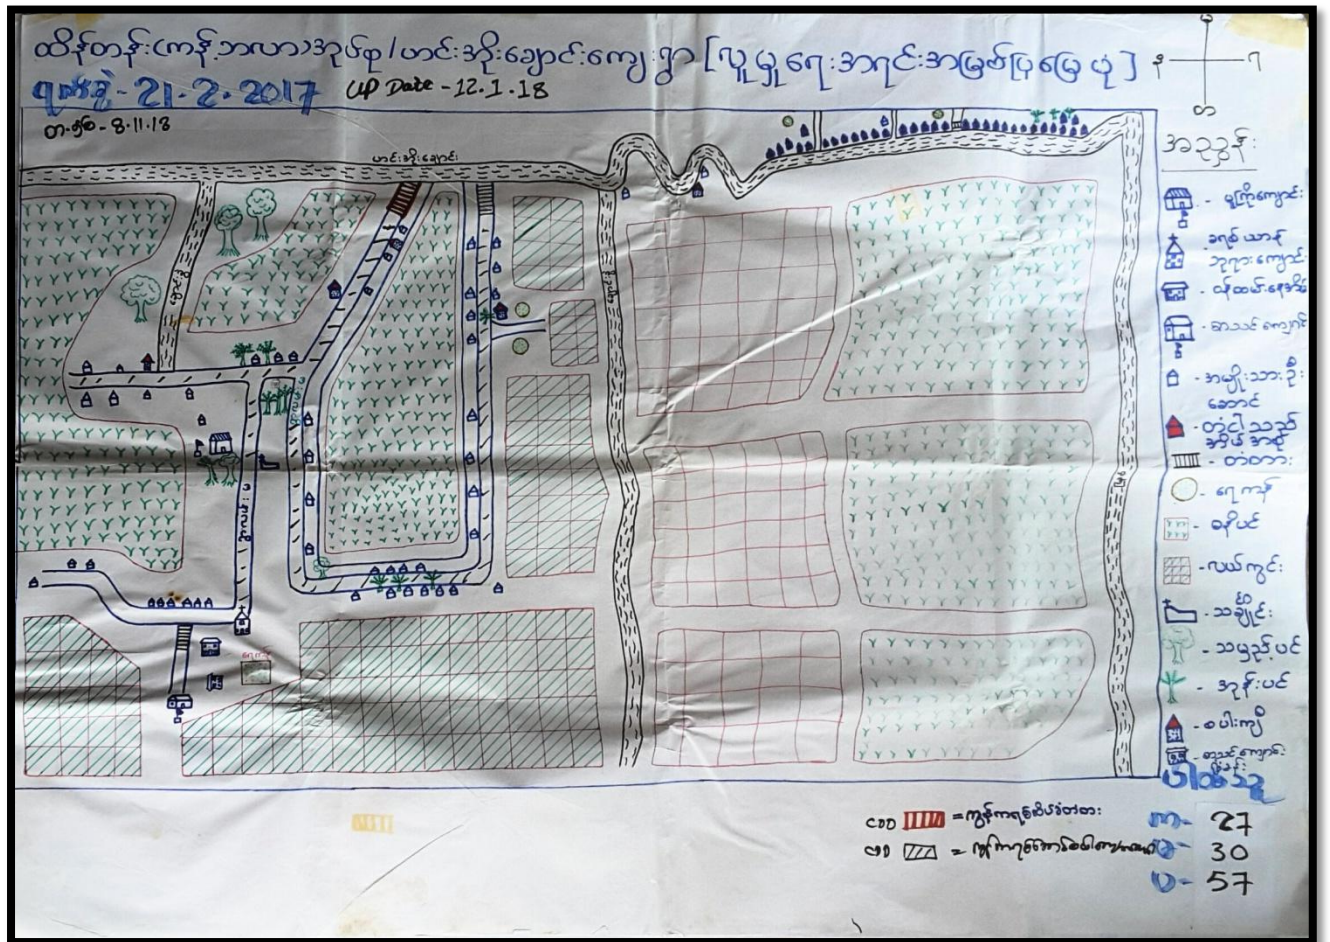 ထိန်တန်း(ကန့်ဘလာ)အုပ်စု/ဟင်းအိုးချောင်းကျေးရွာ [လူမှုရေးအရင်းအမြစ်ပြမြေပုံ]
ရက်စွဲ - 21.2.2017 UP Date - 12.1.18
တ-ကြိမ် - 8.11.18
ဟင်းအိုးချောင်း
အညွှန်း
- မူကြိုကျောင်း
ခရစ်ယာန်
ဘုရားကျောင်း
- ဝန်ထမ်းနေအိမ်
- စာသင်ကျောင်း
- အမျိုးသားဦး
ဆောင်
- တံငါသည်
အိမ်အစု
- တံတား
- ရေကန်
- ဓနိပင်
- လယ်ကွင်း
- သင်္ချိုင်း
- သမည့်ပင်
- အုန်းပင်
- စပါးကျီ
ပါဝင်သူ
CDD = ကွန်ကရစ်ဆိပ်ခံတံတား
CDD
က - 27
မ - 30
ပ - 57